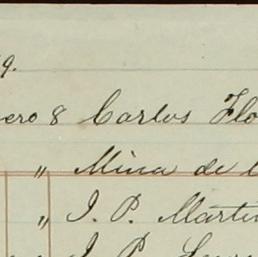 9.
ero 8 Carlos Flo
" Mina de l
" J. P. Martin
J. P.